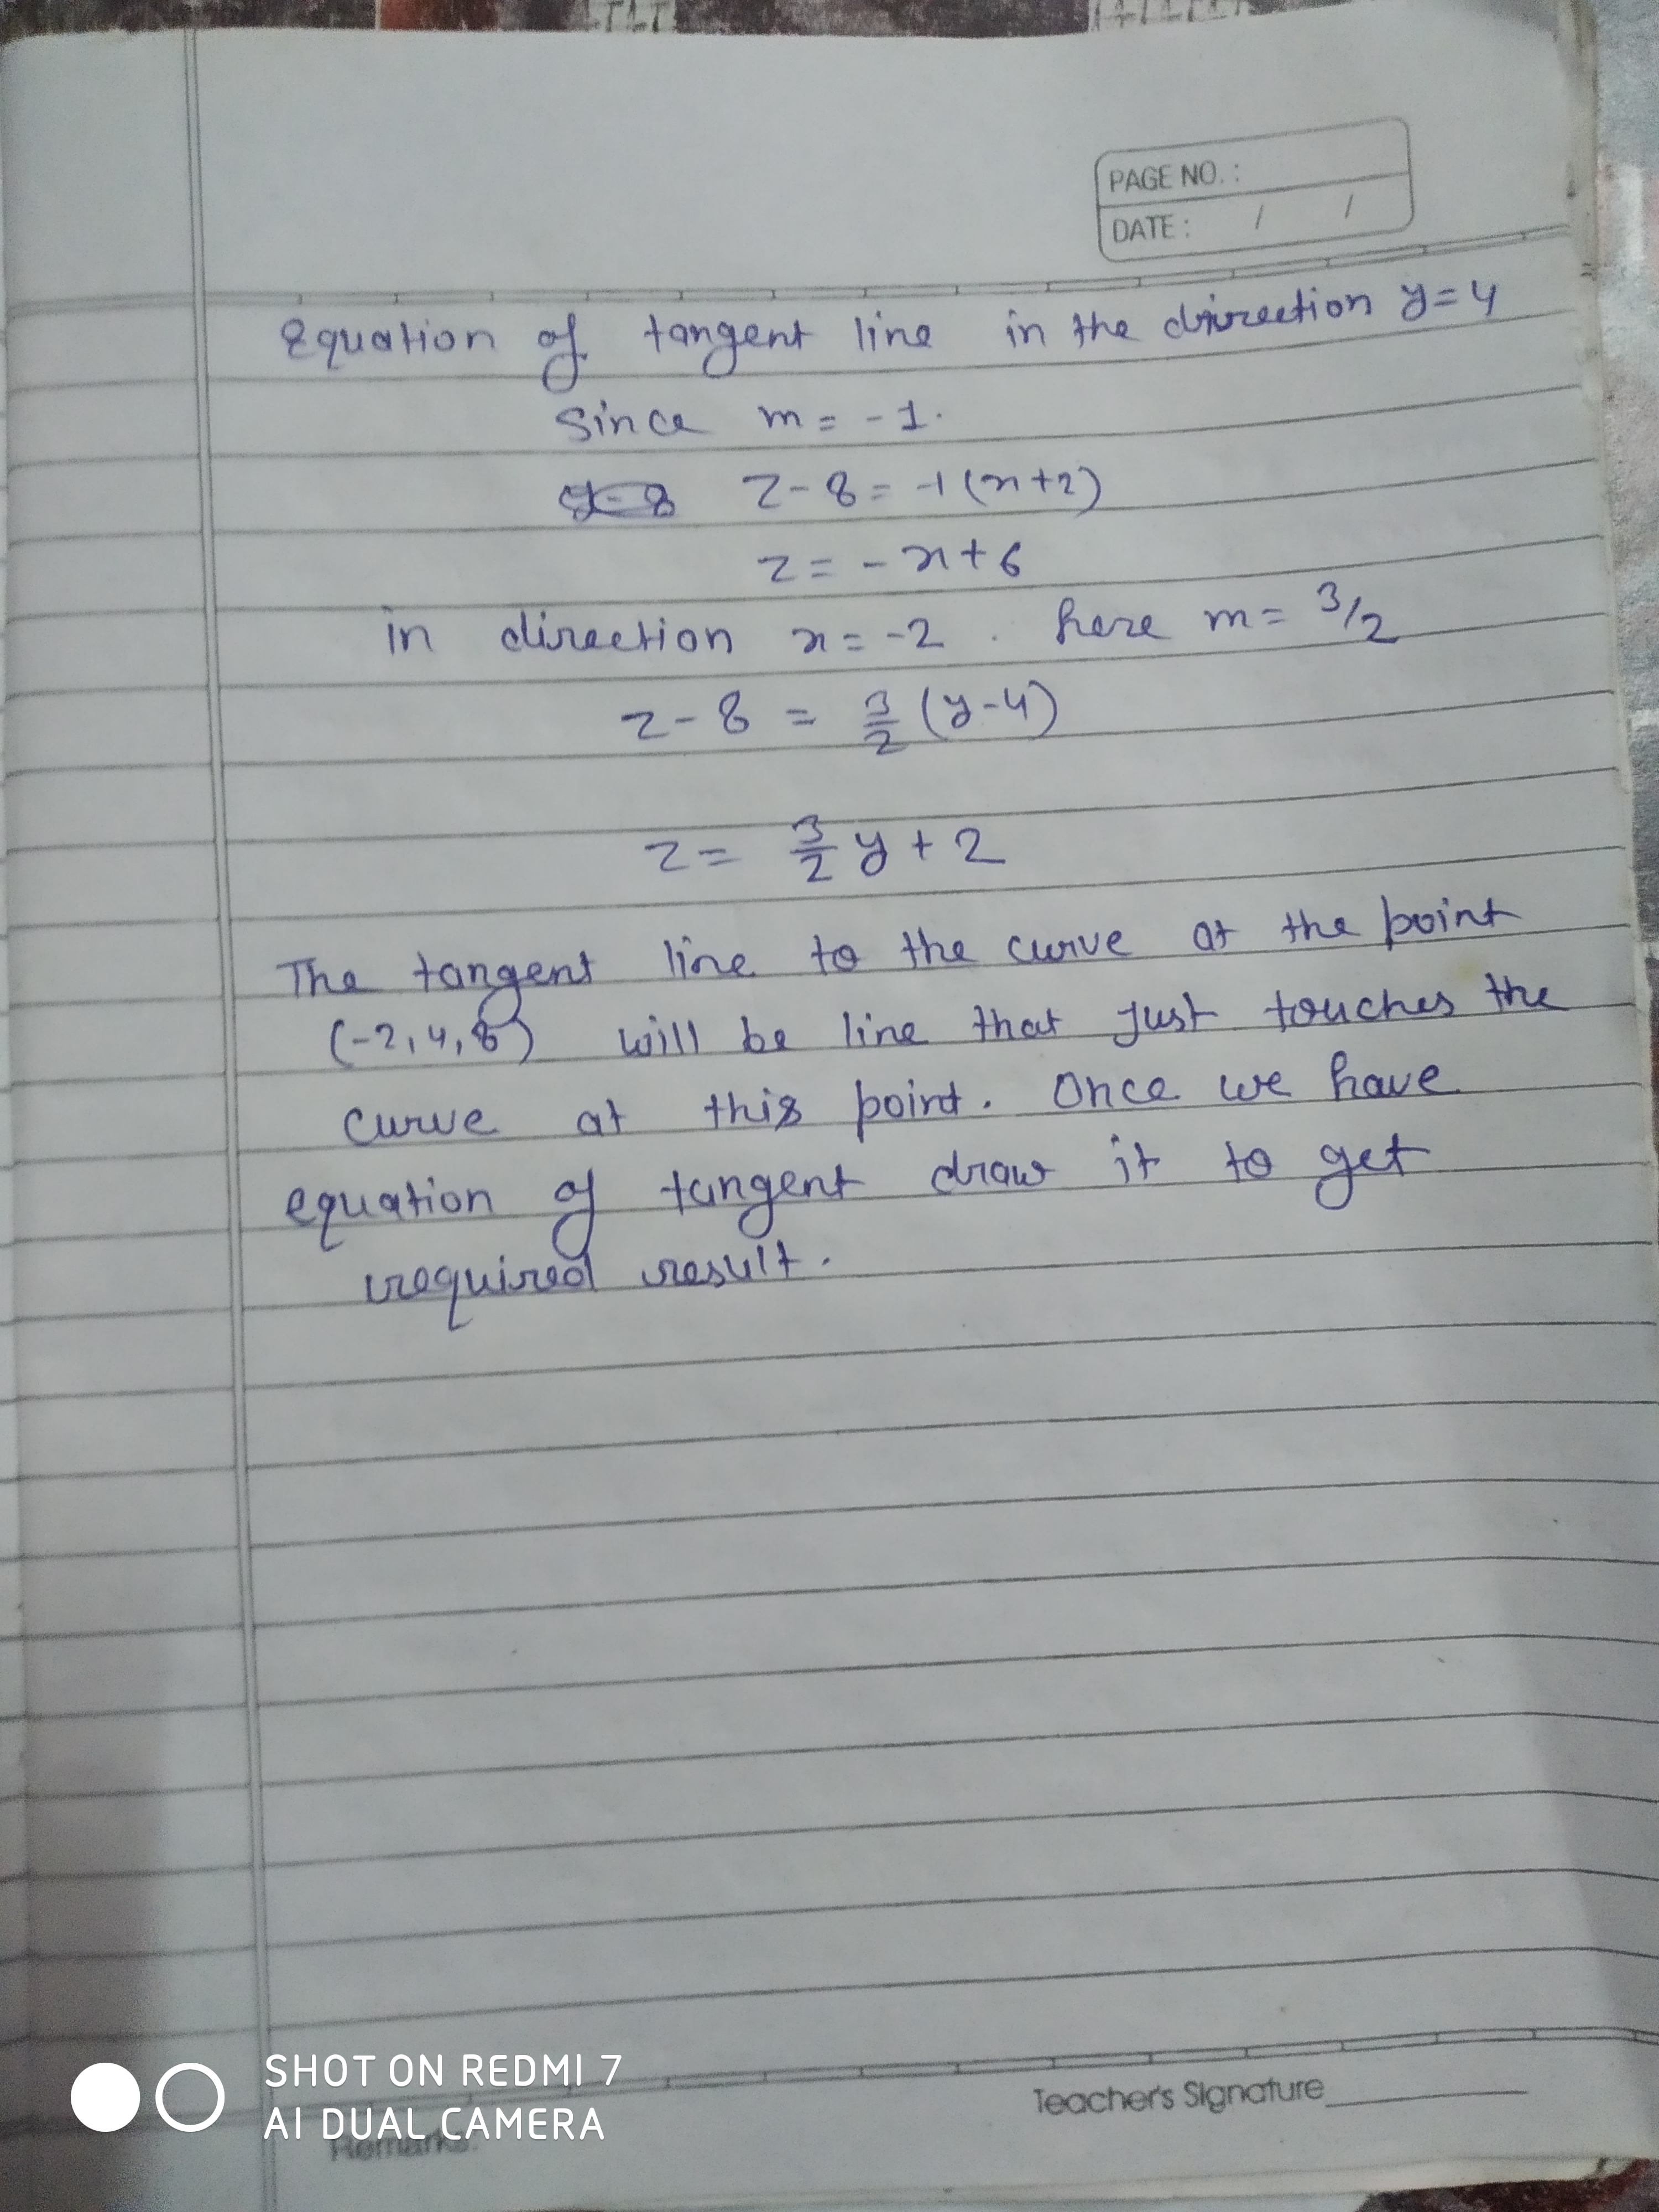 PAGE NO. :
DATE : / /
Equation of tangent line in the direction y=4
Since m = -1.
z-8 = -1(x+2)
z = -x+6
in direction x=-2 . here m= 3/2
z-8 = 3/2 (y-4)
z = 3/2 y + 2
The tangent line to the curve at the point
(-2,4,8) will be line that just touches the
curve at this point. Once we have
equation of tangent draw it to get
required result.
SHOT ON REDMI 7
AI DUAL CAMERA
Teacher's Signature
Remarks: